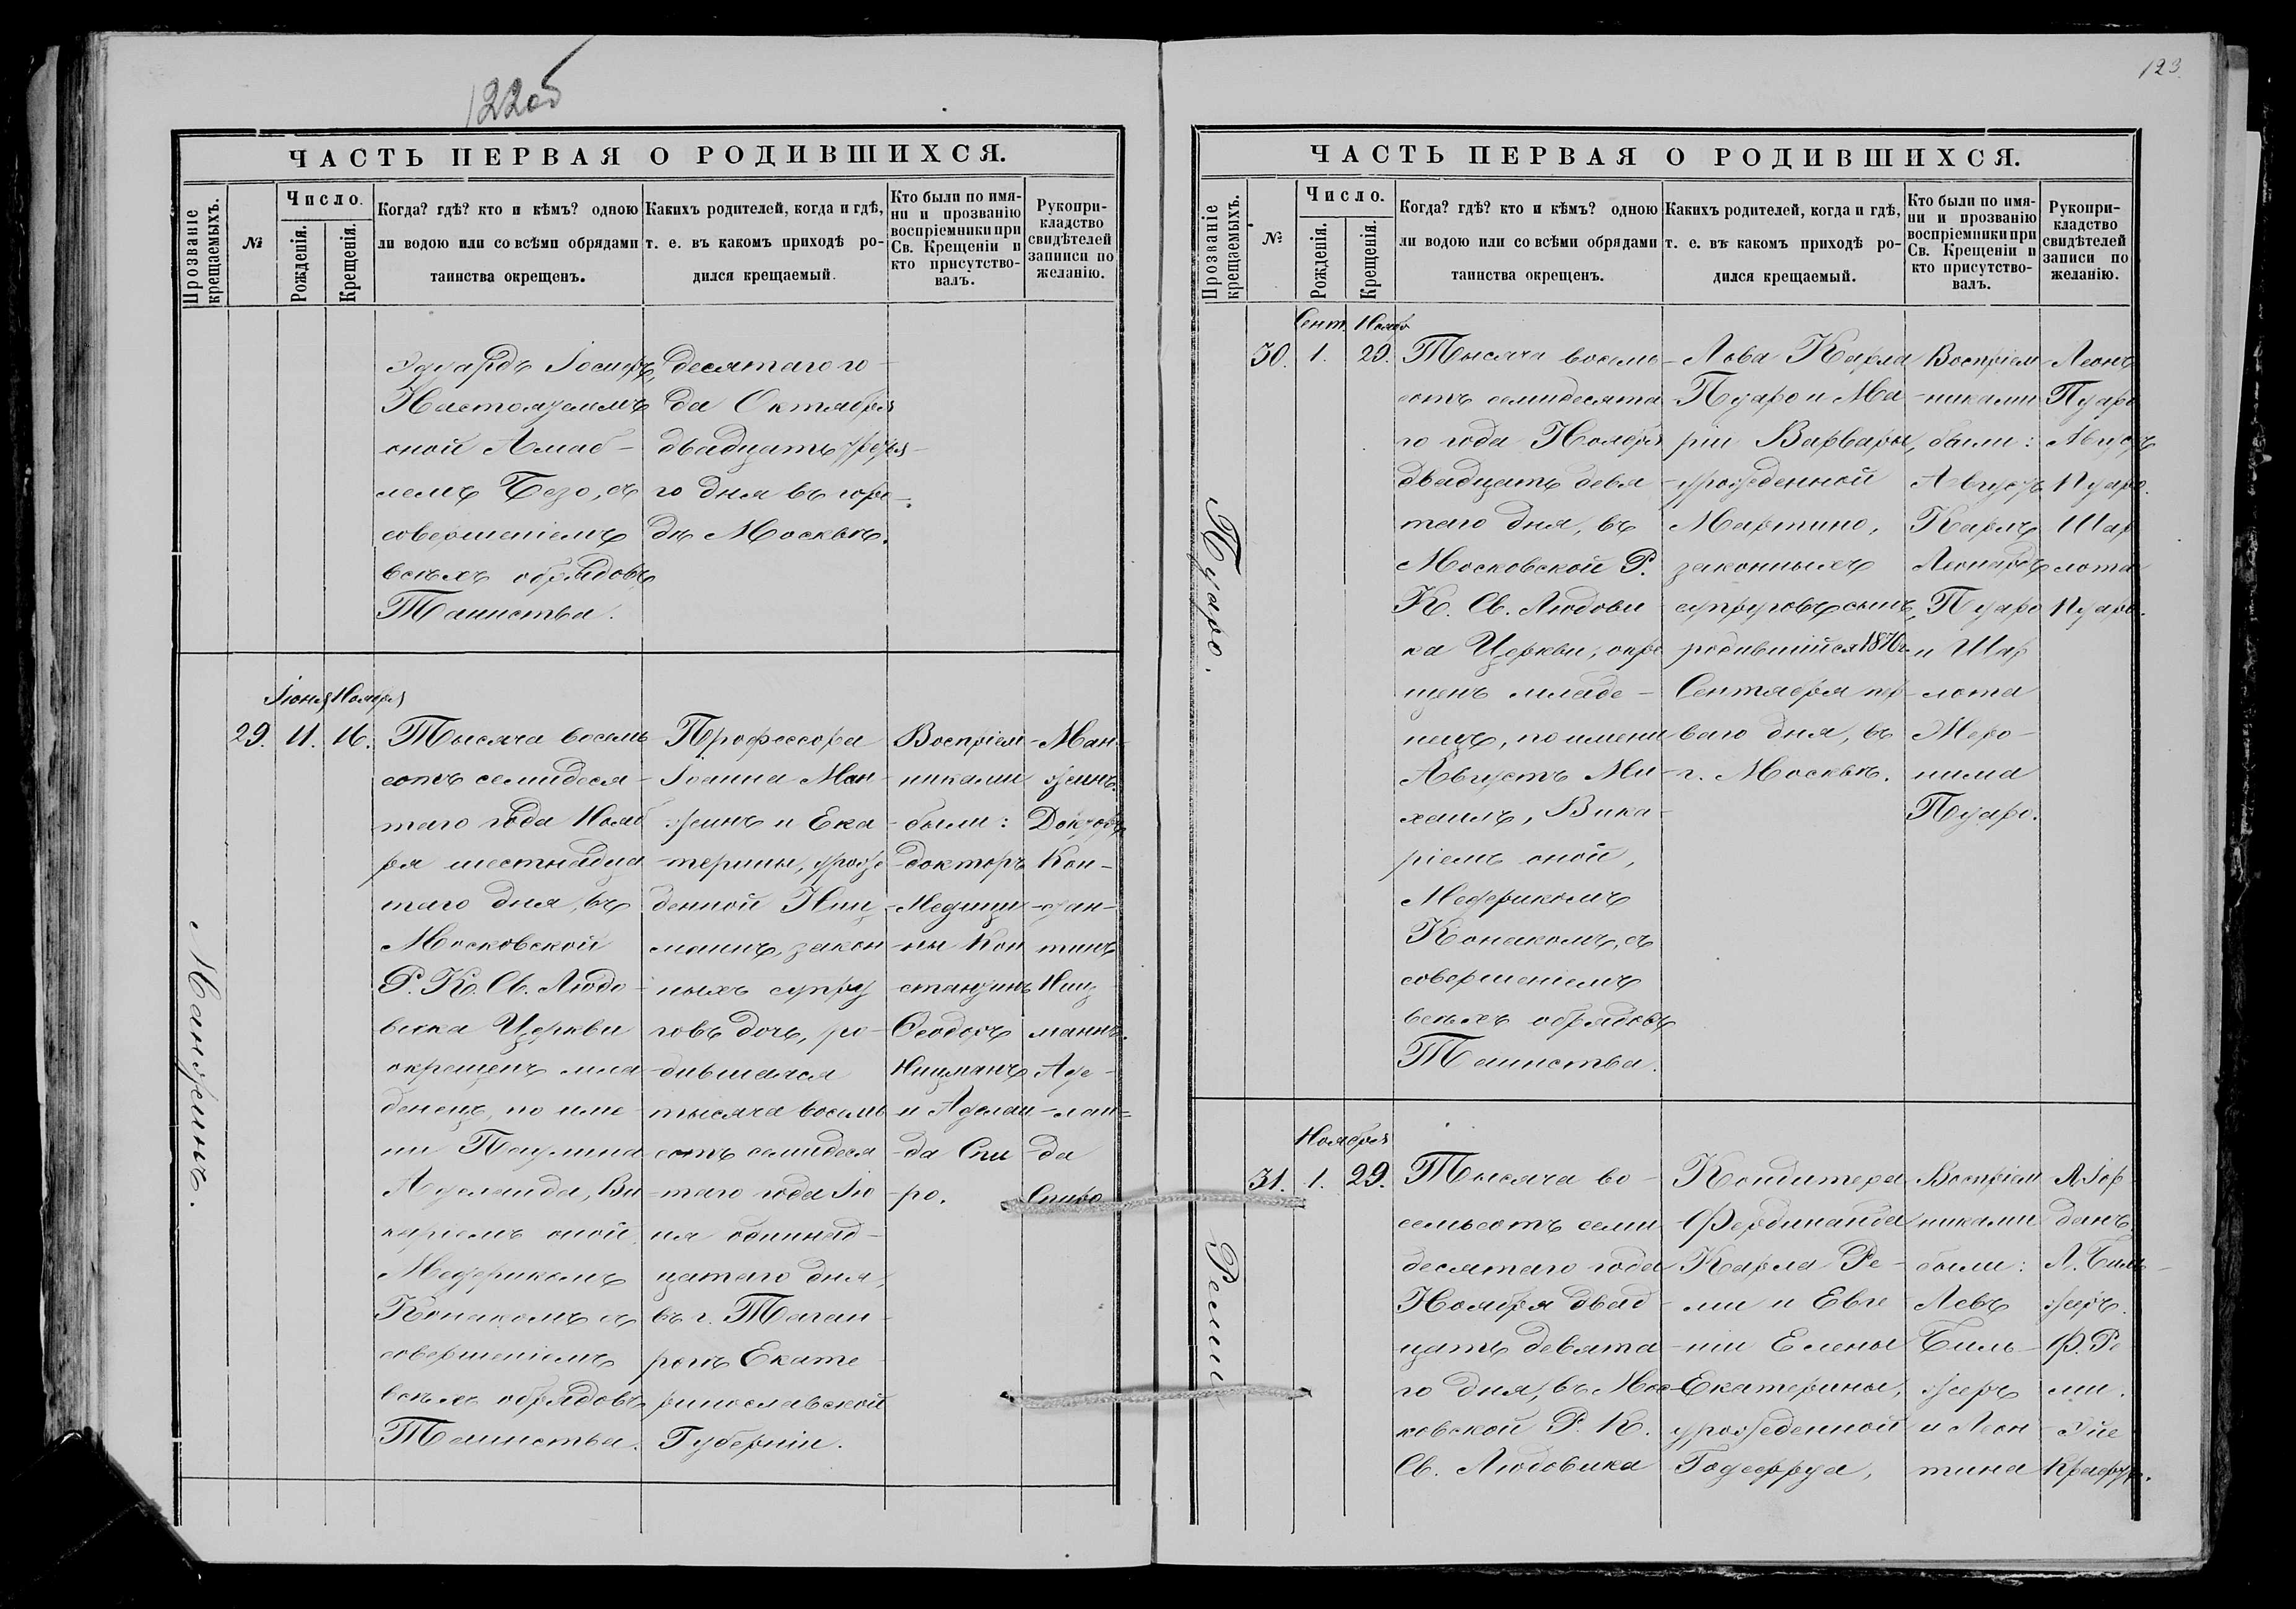 122об
ЧАСТЬ ПЕРВАЯ О РОДИВШИХСЯ.
Прозваніе крещаемыхъ.
№
Число.
Рожденія.
Крещенія.
Когда? гдѣ? кто и кѣмъ? одною
ли водою или со всѣми обрядами
таинства окрещенъ.
Какихъ родителей, когда и гдѣ,
т. е. въ какомъ приходѣ ро-
дился крещаемый.
Кто были по имя-
ни и прозванію
воспріемники при
Св. Крещеніи и
кто присутство-
валъ.
Рукопри-
кладство
свидѣтелей
записи по
желанію.
Эдуардъ Іосифъ,
Настоятелемъ
оной Аматб-
лемъ Безо, съ
совершеніемъ
всѣхъ обрядовъ
Таинства.
десятаго го-
да Октября
двадцать третья-
го дня въ горо-
дѣ Москвѣ.
Манжинъ.
Іюня Ноября
29. 11. 16.
Тысяча восемь
сотъ семидеся-
таго года Нояб
ря шестнадца
таго дня, въ
Московской
Р. К. Св. Людо-
вика Церкви
окрещенъ мла
денецъ, по име
ни Паулина
Аделаида, Ви
каріемъ оной
Медерикомъ
Конакомъ съ
совершеніемъ
всѣхъ обрядовъ
Таинства.
Профессора
Іоанна Ман
жинъ и Ека
терины, урож
денной Ниц
манъ, закон
ныхъ супру
говъ дочь, ро-
дившаяся
тысяча восемь
сотъ семидеся
таго года Ію
ня одиннад-
цатаго дня,
въ г. Таган-
рогъ Екате
ринославской
Губерніи.
Воспріем-
никами
были:
докторъ
Медици-
ны Кон
стантинъ
Ѳеодоръ
Ницманъ
и Аделаи
да Спи
ро.
Ман-
жинъ.
Докторъ
Кон-
стан-
тинъ
Ниц
манъ.
Аде-
лаи-
да
Спиро
123.
ЧАСТЬ ПЕРВАЯ О РОДИВШИХСЯ.
Прозваніе крещаемыхъ.
№
Число.
Рожденія.
Крещенія.
Когда? гдѣ? кто и кѣмъ? одною
ли водою или со всѣми обрядами
таинства окрещенъ.
Какихъ родителей, когда и гдѣ,
т. е. въ какомъ приходѣ ро-
дился крещаемый.
Кто были по имя-
ни и прозванію
воспріемники при
Св. Крещеніи и
кто присутство-
валъ.
Рукопри-
кладство
свидѣтелей
записи по
желанію.
Пуаро.
Сент. Нояб
30. 1. 29.
Тысяча восемь
сотъ семидесята
го года Ноября
двадцать девя
таго дня, въ
Московской Р.
К. Св. Людови
ка Церкви, окре
щенъ младе-
нецъ, по имени
Августъ Ми-
хаилъ, Вика-
ріемъ оной,
Медерикомъ
Конакомъ, съ
совершеніемъ
всѣхъ обрядовъ
Таинства.
Льва Карла
Пуаро и Ма
ріи Варвары,
урожденной
Мартино,
законныхъ
супруговъ сынъ,
родившійся 1870 г.
Сентября пер-
ваго дня, въ
г. Москвѣ.
Воспріем
никами
были:
Августъ
Карлъ
Леонардъ
Пуаро
и Шар
лота
Меро-
нима
Пуаро.
Леонъ
Пуаро
Августъ
Пуаро.
Шар
лота
Пуаро.
Реми
Ноября
31. 1. 29.
Тысяча во-
семьсотъ семи
десятаго года
Ноября двад
цать девята
го дня, въ Мос-
ковской Р. К.
Св. Людовика
Кондитера
Фердинанда
Карла Ре-
ми и Евге
ніи Елены
Екатерины,
урожденной
Годеффруа,
Воспріем
никами
были:
Левъ
Биль-
жеръ
и Леон
тина
Л. Жор
данъ.
Л. Биль-
жеръ.
Ф. Ре
ми.